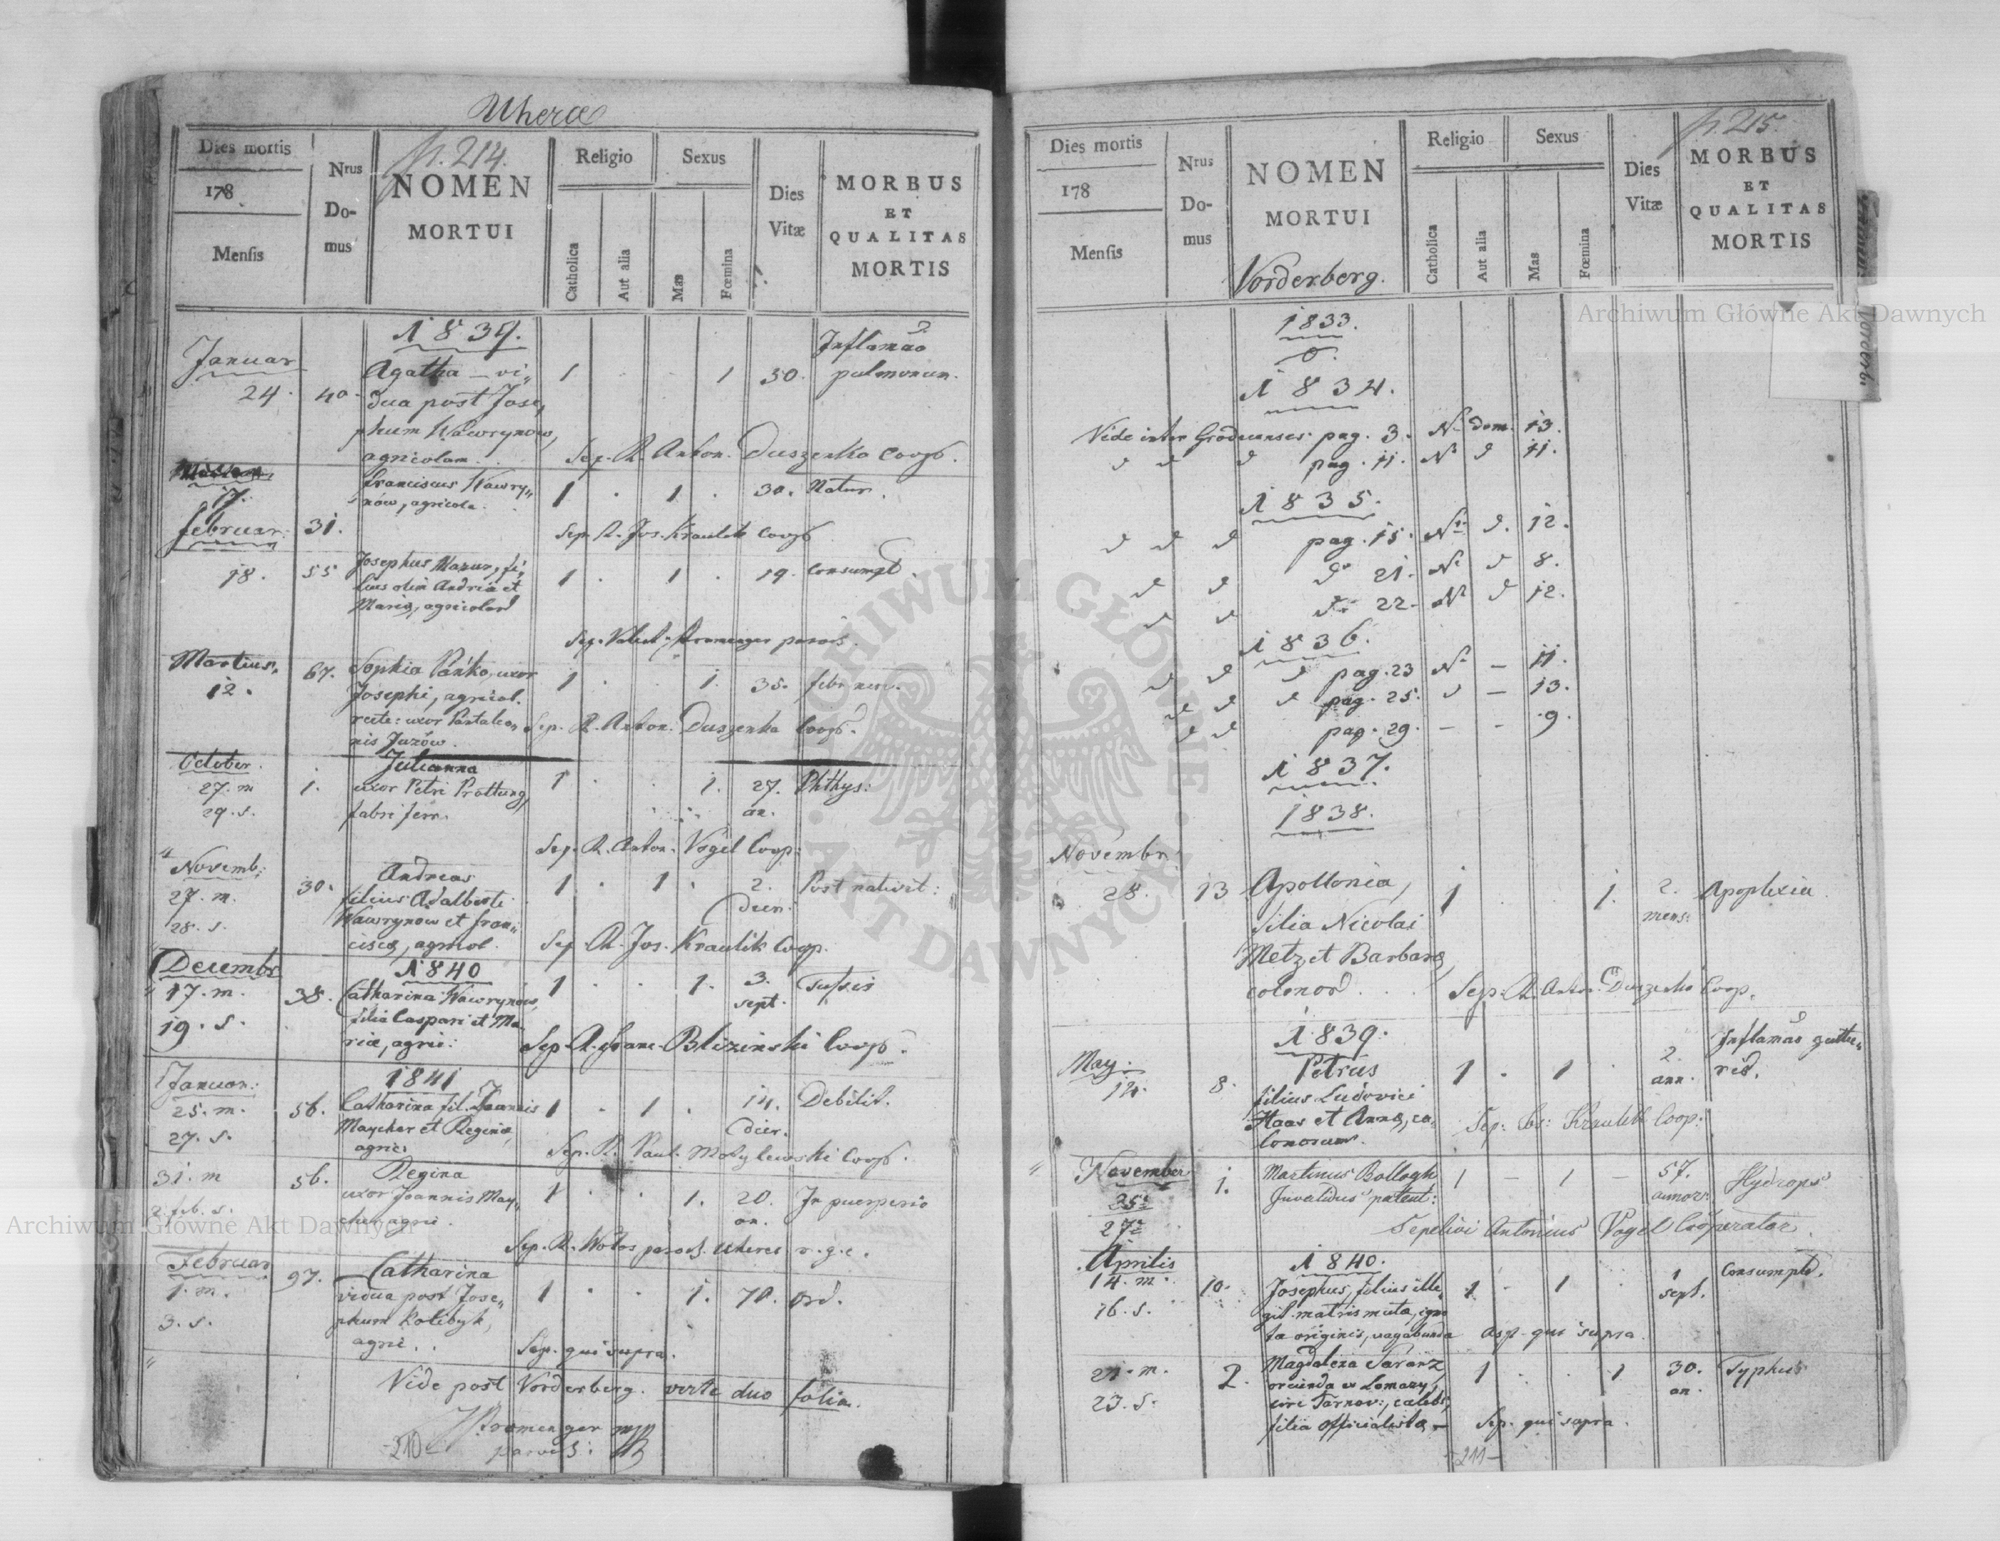 Uherce
Dies mortis
178
Mensis
Nrus Do-mus
p. 214.
NOMEN
MORTUI
Religio
Catholica
Aut alia
Sexus
Mas
Fœmina
Dies Vitæ
MORBUS
ET
QUALITAS
MORTIS
1839.
Januar
24. 40. Agatha vi-
dua post Jose-
phum Wawrynow,
agricolam.
1 . . 1 30. Inflamao
pulmonum.
Sep. R. Anton. Duszenko Coop.
17.
Februar. 31. Franciscus Wawry-
nów, agricola. 1 . 1 . 30. Natur.
Sep. R. Jos. Kraulik Coop.
18. 55 Josephus Mazur, fi-
lius olim Andreæ et
Mariæ, agricolar 1 . 1 . 19. Consumpt.
Sep. Valent. Kromenger paroch.
Martius.
12. 67. Sophia Pańko, uxor
Josephi, agricol. 1 . . 1. 35. febr. ner.
recte: uxor Pantaleo-
nis Jurów.
Sep. R. Anton. Duszenko Coop.
October.
27. m 1. Julianna
uxor Petri Prottung, 1 . . 1. 27. Phthys:
29. s. fabri ferr. an.
Sep. R. Anton. Vogel Coop:
Novemb:
27. m. 30. Andreas
filius Adalberti 1 . 1 . 2. Post nativit:
28. s. Wawrynow et Fran-
ciscæ, agricol. dier.
Sep. R. Jos. Kraulik Coop.
Decembr 1840
17. m. 38. Catharina Wawrynow, 1 . . 1. 3. Tussis
19. s. filia Caspari et Ma-
riæ, agric: sept.
Sep. R. Franc. Blizinski Coop.
Januar: 1841
25. m. 56. Catharina fil. Joannis 1 . 1 . 14. Debilit.
27. s. Maycher et Reginæ,
agric: dier.
Sep. R. Paul. Motylewski Coop.
31. m 56. Regina
uxor Joannis May-
cher agric. 1 . . 1. 20. In puerperio
2 feb. s. an.
Sep. R. Wolos paroch. Uheres r. g. c.
Februar
1. m. 97. Catharina
vidua post Jose-
phum Kolibyk, 1 . . 1. 70. Ord.
3. s. agric.
Sep. qui supra.
Vide post Vorderberg. verte duo folia.
Kromenger mp
paroch:
-210-
Dies mortis
178
Mensis
Nrus Do-mus
NOMEN
MORTUI
Vorderberg.
Religio
Catholica
Aut alia
Sexus
Mas
Fœmina
Dies Vitæ
p. 215.
MORBUS
ET
QUALITAS
MORTIS
1833.
0.
1834.
Vide inter Grodecenses pag. 3. No dom. 13.
d d d pag. 11. No d 11.
1835.
d d d pag. 15. No d. 12.
d d do 21. No d 8.
d d do 22. No d 12.
1836.
d d d pag. 23 No — 11.
d d d pag. 25. d — 13.
d d pag. 29. — - 9.
1837.
1838.
Novembr
28. 13 Apollonia,
filia Nicolai
Metz et Barbaræ,
colonor. 1 . . 1. 2.
mens: Apoplexia.
Sep: R. Anton. Duszenko Coop.
1839.
May.
14. 8. Petrus
filius Ludovici
Haas et Annæ, co-
lonorum. 1 . 1 . 2.
ann. Inflamao guttu-
ris.
Sep: Jos: Kraulik Coop:
November
25a
27a 1. Martinus Ballogh
Invalidus patent: 1 - 1 - 57.
annor: Hydrops
Sepelivi Antonius Vogel Cooperator.
Aprilis 1840.
14. m. 10. Josephus, filius ille-
16. s. git. matris mutæ, igno-
tæ originis, vagabunda 1 - 1 . 1
sept. Consumpt.
Asp. qui supra.
21. m. 2. Magdalena Taranz
oriunda ex Lomazy,
23. s. circ. Tarnov:, cælebs,
filia officialistæ 1 . . 1 30.
an. Typhus
Sep. qui supra.
-211-
Vorderb.
Archiwum Główne Akt Dawnych
Archiwum Główne Akt Dawnych
ARCHIWUM GŁÓWNE · AKT DAWNYCH ·